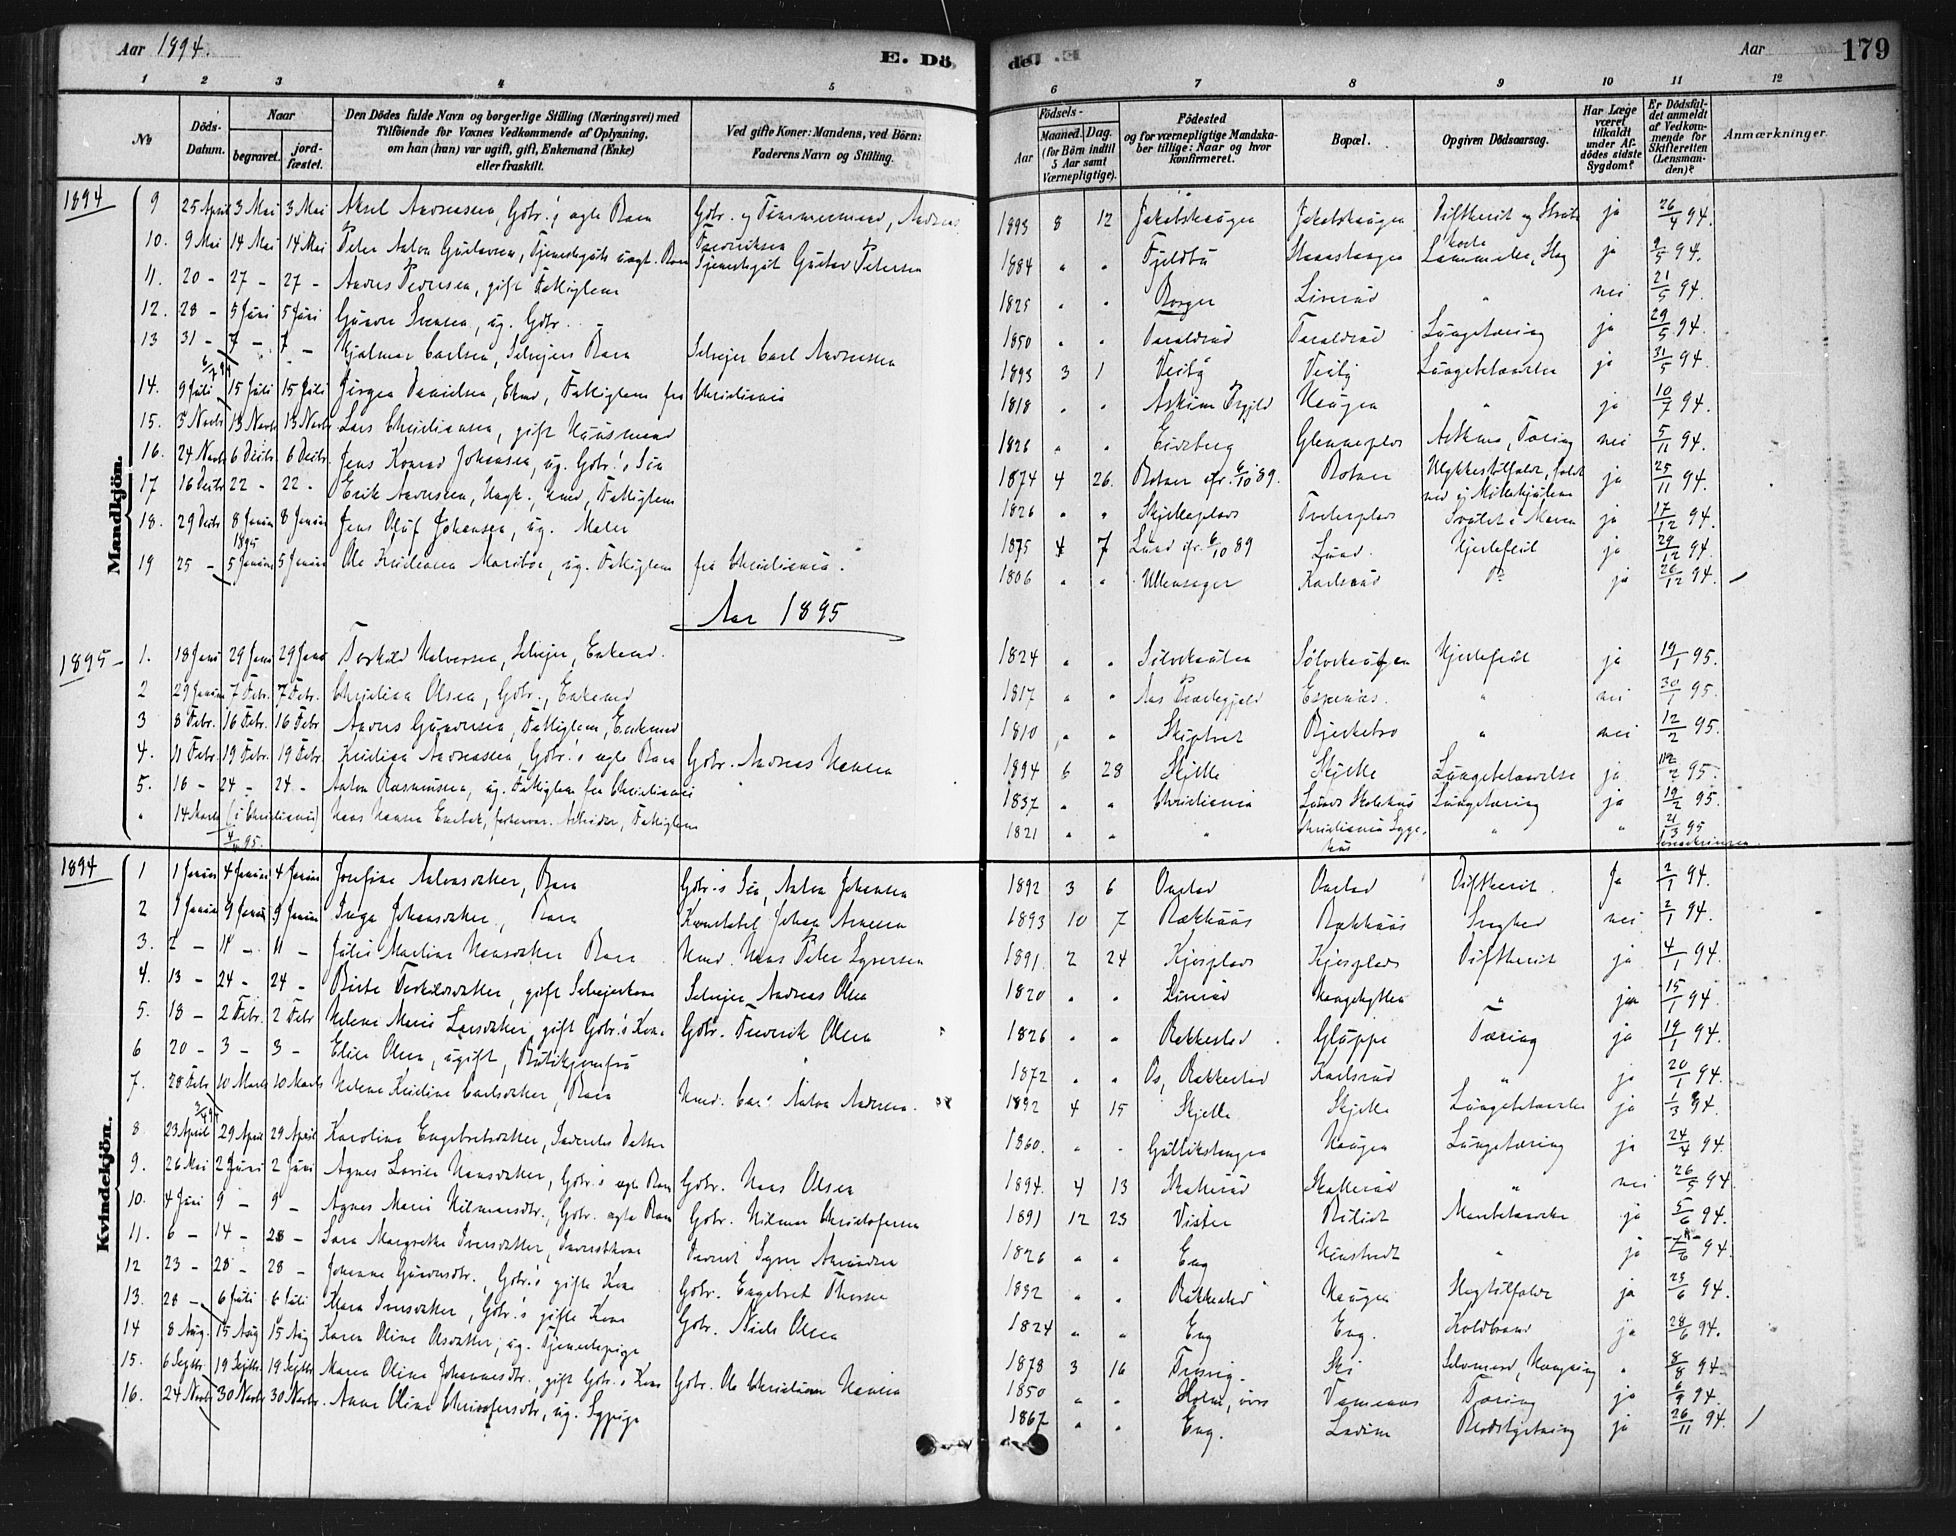 Aar 1894.
E. Dö
de.
Aar
179
1 2 3 4 5
6 7 8 9 10 11 12
No
Döds-Datum.
Naar
begravet.
jordfæstet.
Den Dödes fulde Navn og borgerlige Stilling (Næringsvei) med
Tilföiende for Voxnes Vedkommende af Oplysning,
om han (hun) var ugift, gift, Enkemand (Enke)
eller fraskilt.
Ved gifte Koner: Mandens, ved Börn:
Faderens Navn og Stilling.
Födsels-
Aar
Maaned. Dag.
(for Börn indtil
5 Aar samt
Værnepligtige).
Födested
og for værnepligtige Mandskaber tillige: Naar og hvor
konfirmeret.
Bopæl.
Opgiven Dödsaarsag.
Har Læge
været
tilkaldt
under Afdödes sidste
Sygdom?
Er Dödsfaldet anmeldt
af Vedkommende for
Skifteretten
(Lensmanden)?
Anmærkninger.
Mandkjön.
1894
9 25 April 3 Mai 3 Mai Aksel Andreassen, Gbr.'s ægte Barn Gbr. og Tømmermand, Andreas Fredriksen 1893 8 12 Jakobshaugen Jakobshaugen Difterit og ja 26/4 94.
10. 9 Mai 14 Mai 14 Mai Peter Anton Gustavsen, Tjenestegut Gustav Petersen 1884 " " Fjeldbu ja 9/5 94.
11. 20 - 27 - 27 - Anders Pedersen, gift Fattiglem 1825 " " Borger Liverud " nei 21/5 94.
12. 28 - 5 Juni 5 Juni Gunder Svensen, ug. Gbr. 1850 " " Taraldrud Taraldrud Lungetæring ja 29/5 94.
13 31 - 7 - 7 - Hjalmar Carlsen, Selvejers Barn Selvejer Carl Andersen 1893 3 1 Visby Visby Lungebetændelse ja 31/5 94.
14. 9 Juli 15 Juli 15 Juli Jørgen Danielsen, Ekmd, Fattiglem fra Christiania 1818 " " Askim Prgjld Haugen " ja 10/7 94.
15. 3 Novbr 13 Novbr 13 Novbr Lars Christiansen, gift Husmand 1826 " " Eidsberg Glenneplads Asthma, Tæring nei 5/11 94.
16. 24 Novbr 6 Decbr 6 Decbr Jens Konrad Johansen, ug. Gbr.'s Søn 1874 4 26 6/10 89. Ulykkestilfælde, ja 25/11 94.
17 16 Decbr 22 - 22 - Erik Andersen, Fattiglem 1826 " " Skjelleplads ja 17/12 94.
18. 29 Decbr 8 Januar 1895 8 Januar Jens Oluf Johansen, ug. Maler 1875 4 7 Lund cfr. 6/10 89 Lund Hjertefeil ja 29/12 94.
19 25 - 5 Januar 5 Januar Ole Kristiansen ug. Fattiglem fra Christiania. 1806 " " Ullensager Karlsrud Do ja 26/12 94.
Aar 1895
1895 -
1. 18 Janr 29 Janr 29 Janr Torkild Halvorsen, Selvejer, Enkemd. 1824 " " Hjertefeil ja 19/1 95.
2 29 Januar 7 Febr. 7 Febr. Christian Olsen, Gbr., Enkemd 1817 " " Aas Præstegjeld Espenæs. " nei 30/1 95.
3 8 Febr. 16 Febr. 16 Febr. Anders Gundersen, Fattiglem, Enkemd 1810 " " Skiptvet Bjerkebro " nei 12/2 95.
4. 11 Febr. 19 Febr. 19 Febr. Kristian Andreassen, Gbr.'s ægte Barn Gbr. Andreas Hansen 1894 6 28 Skjelle Skjelle Lungebetændelse ja 2 95.
5. 16 - 24 - 24 - Anton Rasmussen, ug. Fattiglem fra Christiania 1837 " " Christiania Lunds Skolehus Lungetæring ja 19/2 95.
" 14 Marts (i Christiania) 95. Hans Hansen Arbeider, Fattiglem 1821 " " " Christiania Sygehus " " 21/3 95
Kvindekjön.
1894
1 1 Januar 4 Januar 4 Januar Josefine Antonsdatter, Barn Gbr.'s Søn, Anton Johansen 1892 3 6 Onstad Onstad Difterit. Ja 2/1 94.
2 1 Januar 9 Januar 9 Januar Inga Johansdatter, Barn Johan 1893 10 7 Rækkaas Rækkaas Svaghed nei 2/1 94.
3. 2 - 11 - 11 - Julie Martine Hansdatter Barn Hmd. Hans Peter Syversen 1891. 2 24 Kjosplads Kjosplads Difterit ja 4/1 94.
4. 13 - 24 - 24 - Birte Torkildsdatter, gift Selvejerkone Selvejer Andreas Olsen 1820 " " Liverud Haugehytten " ja 15/1 94.
5. 18 - 2 Febr. 2 Febr Helene Marie Larsdatter, gift Gbr.'s Kone Gbr. Fredrik Olsen 1826 " " Rakkestad Gluppe Tæring ja 19/1 94.
6 20 - 3 - 3 - Elise Olsen, ugift, Butikjomfru 1872 " " Os, Rakkestad Karlsrud " ja 20/1 94.
7. 28 Febr 10 Marts 10 Marts Helene Kristine Carlsdatter, Barn Hmd. Carl Anton Andersen. 1892 4 15 Skjelle Skjelle Lungebetændelse ja 1/3 94.
8 23 April 29 April 29 April Karoline Engebretsdatter, Datter 1860. " " Gullikshaugen Haugen Lungetæring ja 24/4 94.
9. 26 Mai 2 Juni 2 Juni Agnes Lovise Hansdatter, Gbr.'s ægte Barn Gbr. Hans Olsen 1894. 4 13 Skallerud Skallerud " nei 26/5 94
10. 4 Juni 9 - 9 - Agnes Marie Hilmarsdtr., Gbr. ægte Barn Gbr. Hilmar Christofersen 1891 12 23 Vister ja 5/6 94.
11. 6 - 14 - 28 - Sara Margrethe Iversdatter, 1826 " " Eng " ja 7/6 94.
12 23 - 28 - 28 - Johanne Gundersdtr., Gbr.'s gifte Kone Gbr. Engebret Thorsen 1832 " " Rakkestad Haugen Slagtilfælde ja 23/6 94.
13. 28 - 6 Juli 6 Juli Maren Iversdatter, Gbr.'s gifte Kone Gbr. Niels Olsen 1824 " " Eng Eng. Koldbrand ja 28/6 94.
14 8 Aug. 15 Aug 15 Aug Karen Oline Olsdatter, ug. Tjenestepige 1878 3 16 Ski Selvmord, Hængning " 8/8 94
15. 6 Septbr 19 Septbr 19 Septbr Maren Oline Johannesdtr., gift Gbr.'s Kone Gbr. Ole Christian Hansen 1850 " " Holm, øvre Tæring ja 6/9 94.
16. 24 Novbr 30 Novbr 30 Novbr. Anne Oline Christofersdtr, ug. Sypige 1867 " " Eng. Blodstyrtning ja 26/11 94.